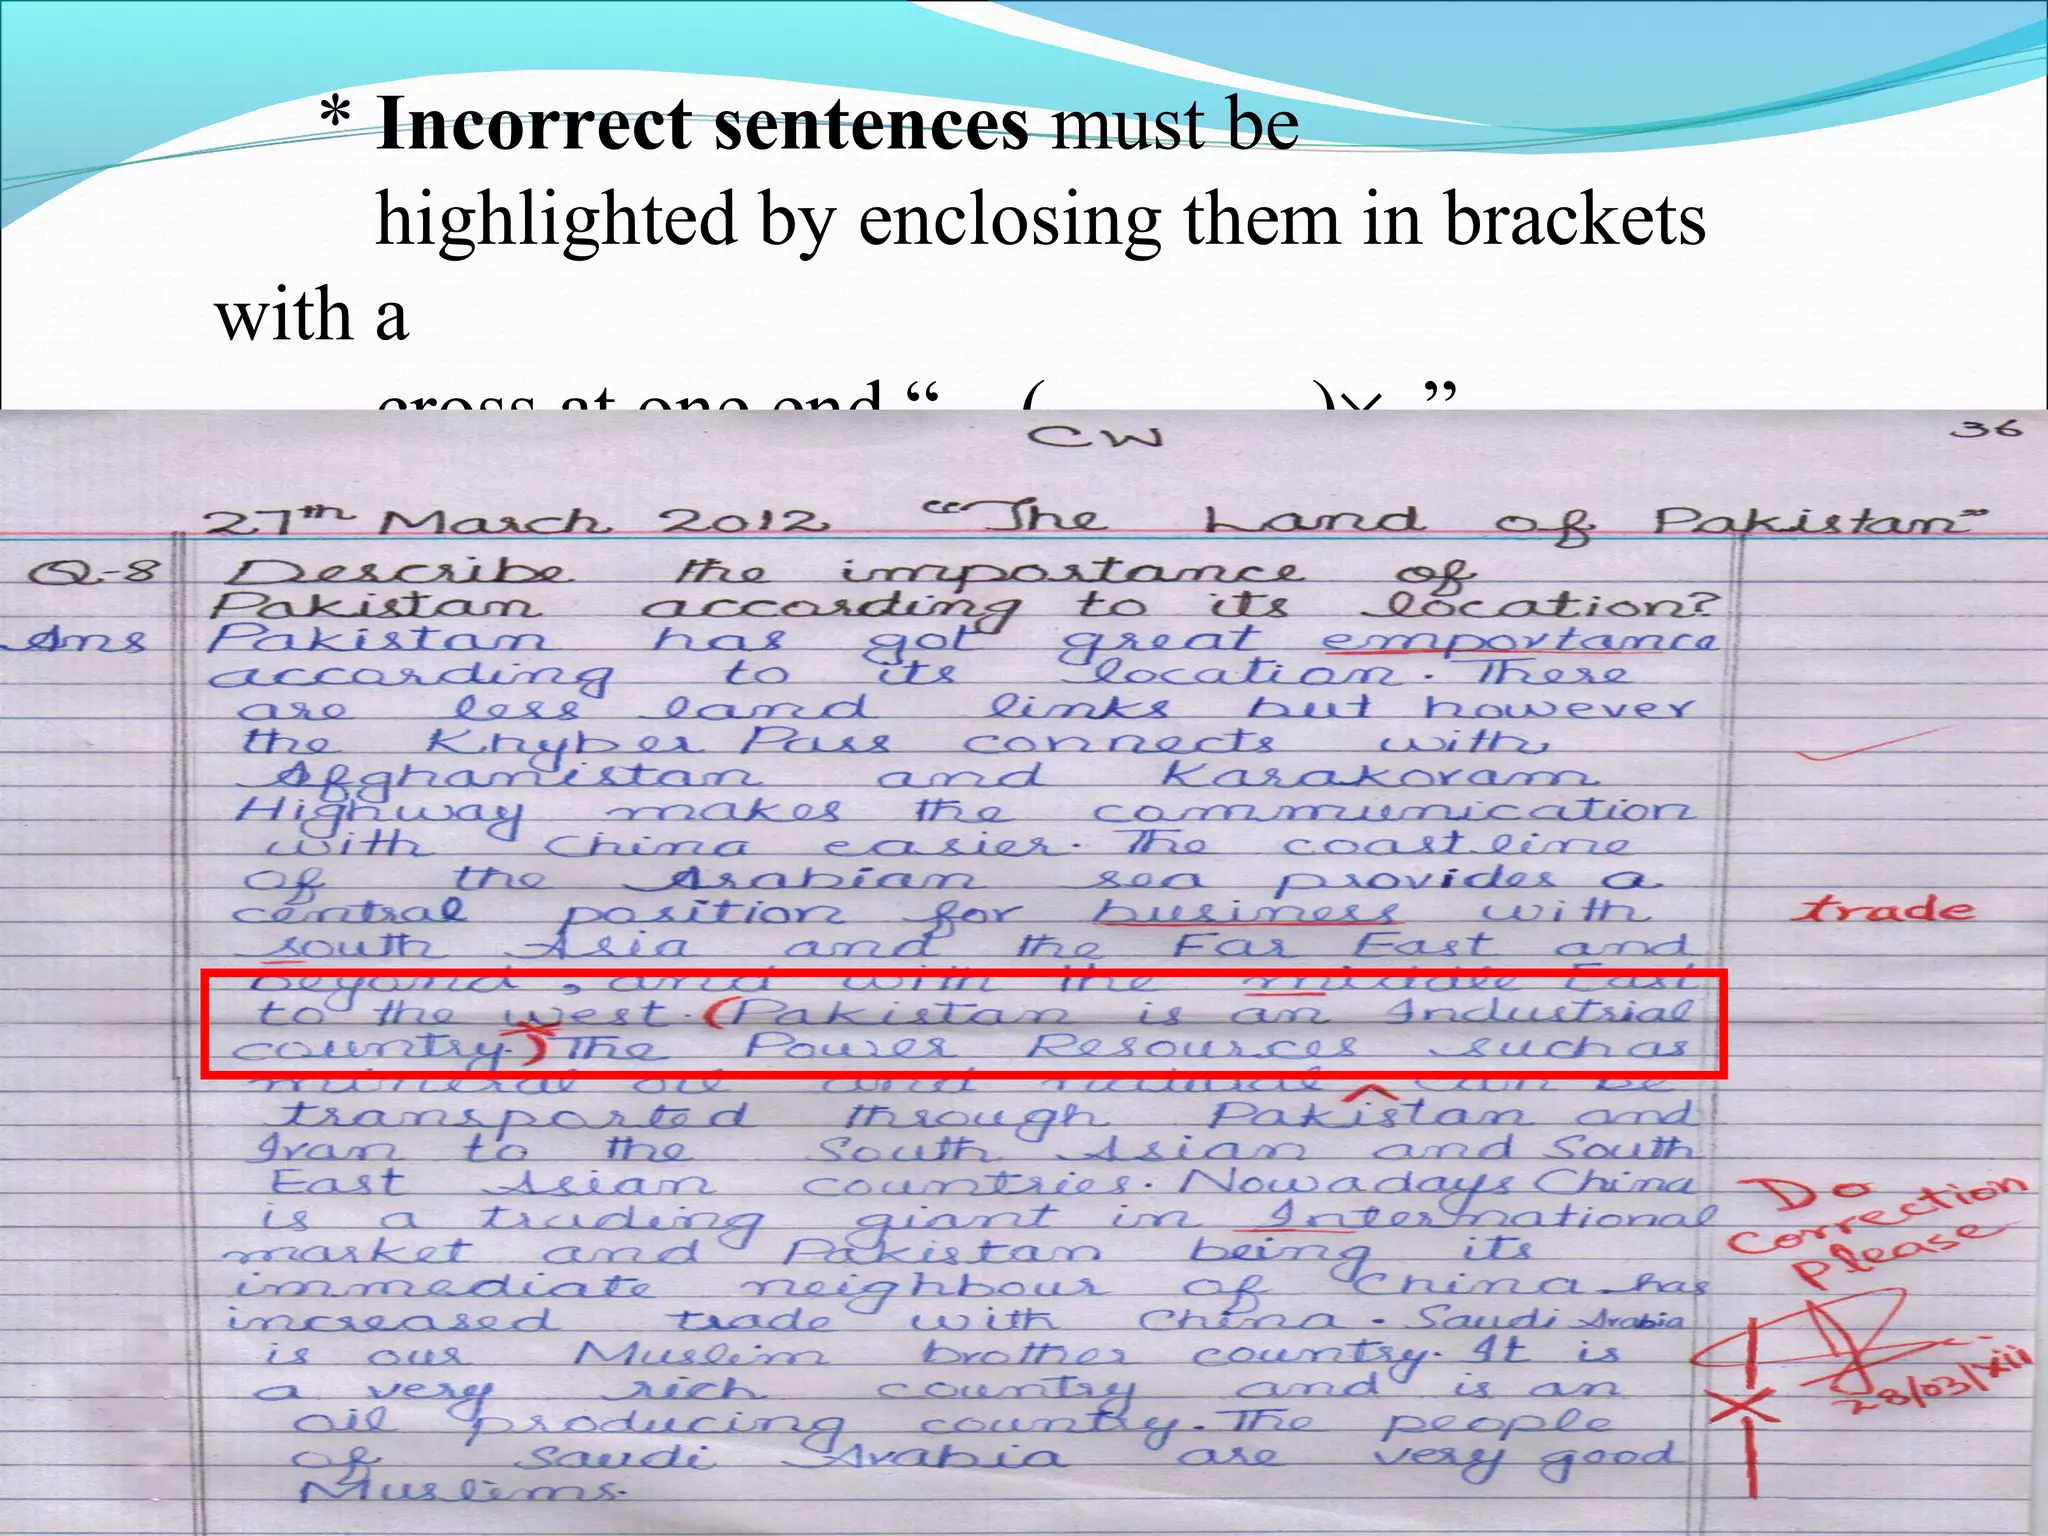 * Incorrect sentences must be
highlighted by enclosing them in brackets
with a
cross at one end “ ( )× ”
CW 36
27th March 2012 “The Land of Pakistan”
Q-8 Describe the importance of
Pakistan according to its location?
Ans Pakistan has got great emportance
according to its location. There
are less land links but however
the Khyber Pass connects with
Afghanistan and Karakoram
Highway makes the communication
with China easier. The coastline
of the Arabian sea provides a
central position for business with trade
south Asia and the Far East and
beyond, and with the middle East
to the west. (Pakistan is an Industrial
country.) The Power Resources such as
mineral oil and natural ^ can be
transported through Pakistan and
Iran to the South Asian and South
East Asian countries. Nowadays China
is a trading giant in International
market and Pakistan being its
immediate neighbour of China has
increased trade with China. Saudi Arabia
is our Muslim brother country. It is
a very rich country and is an
oil producing country. The people
of Saudi Arabia are very good
Muslims.
Do
correction
please
28/03/xii